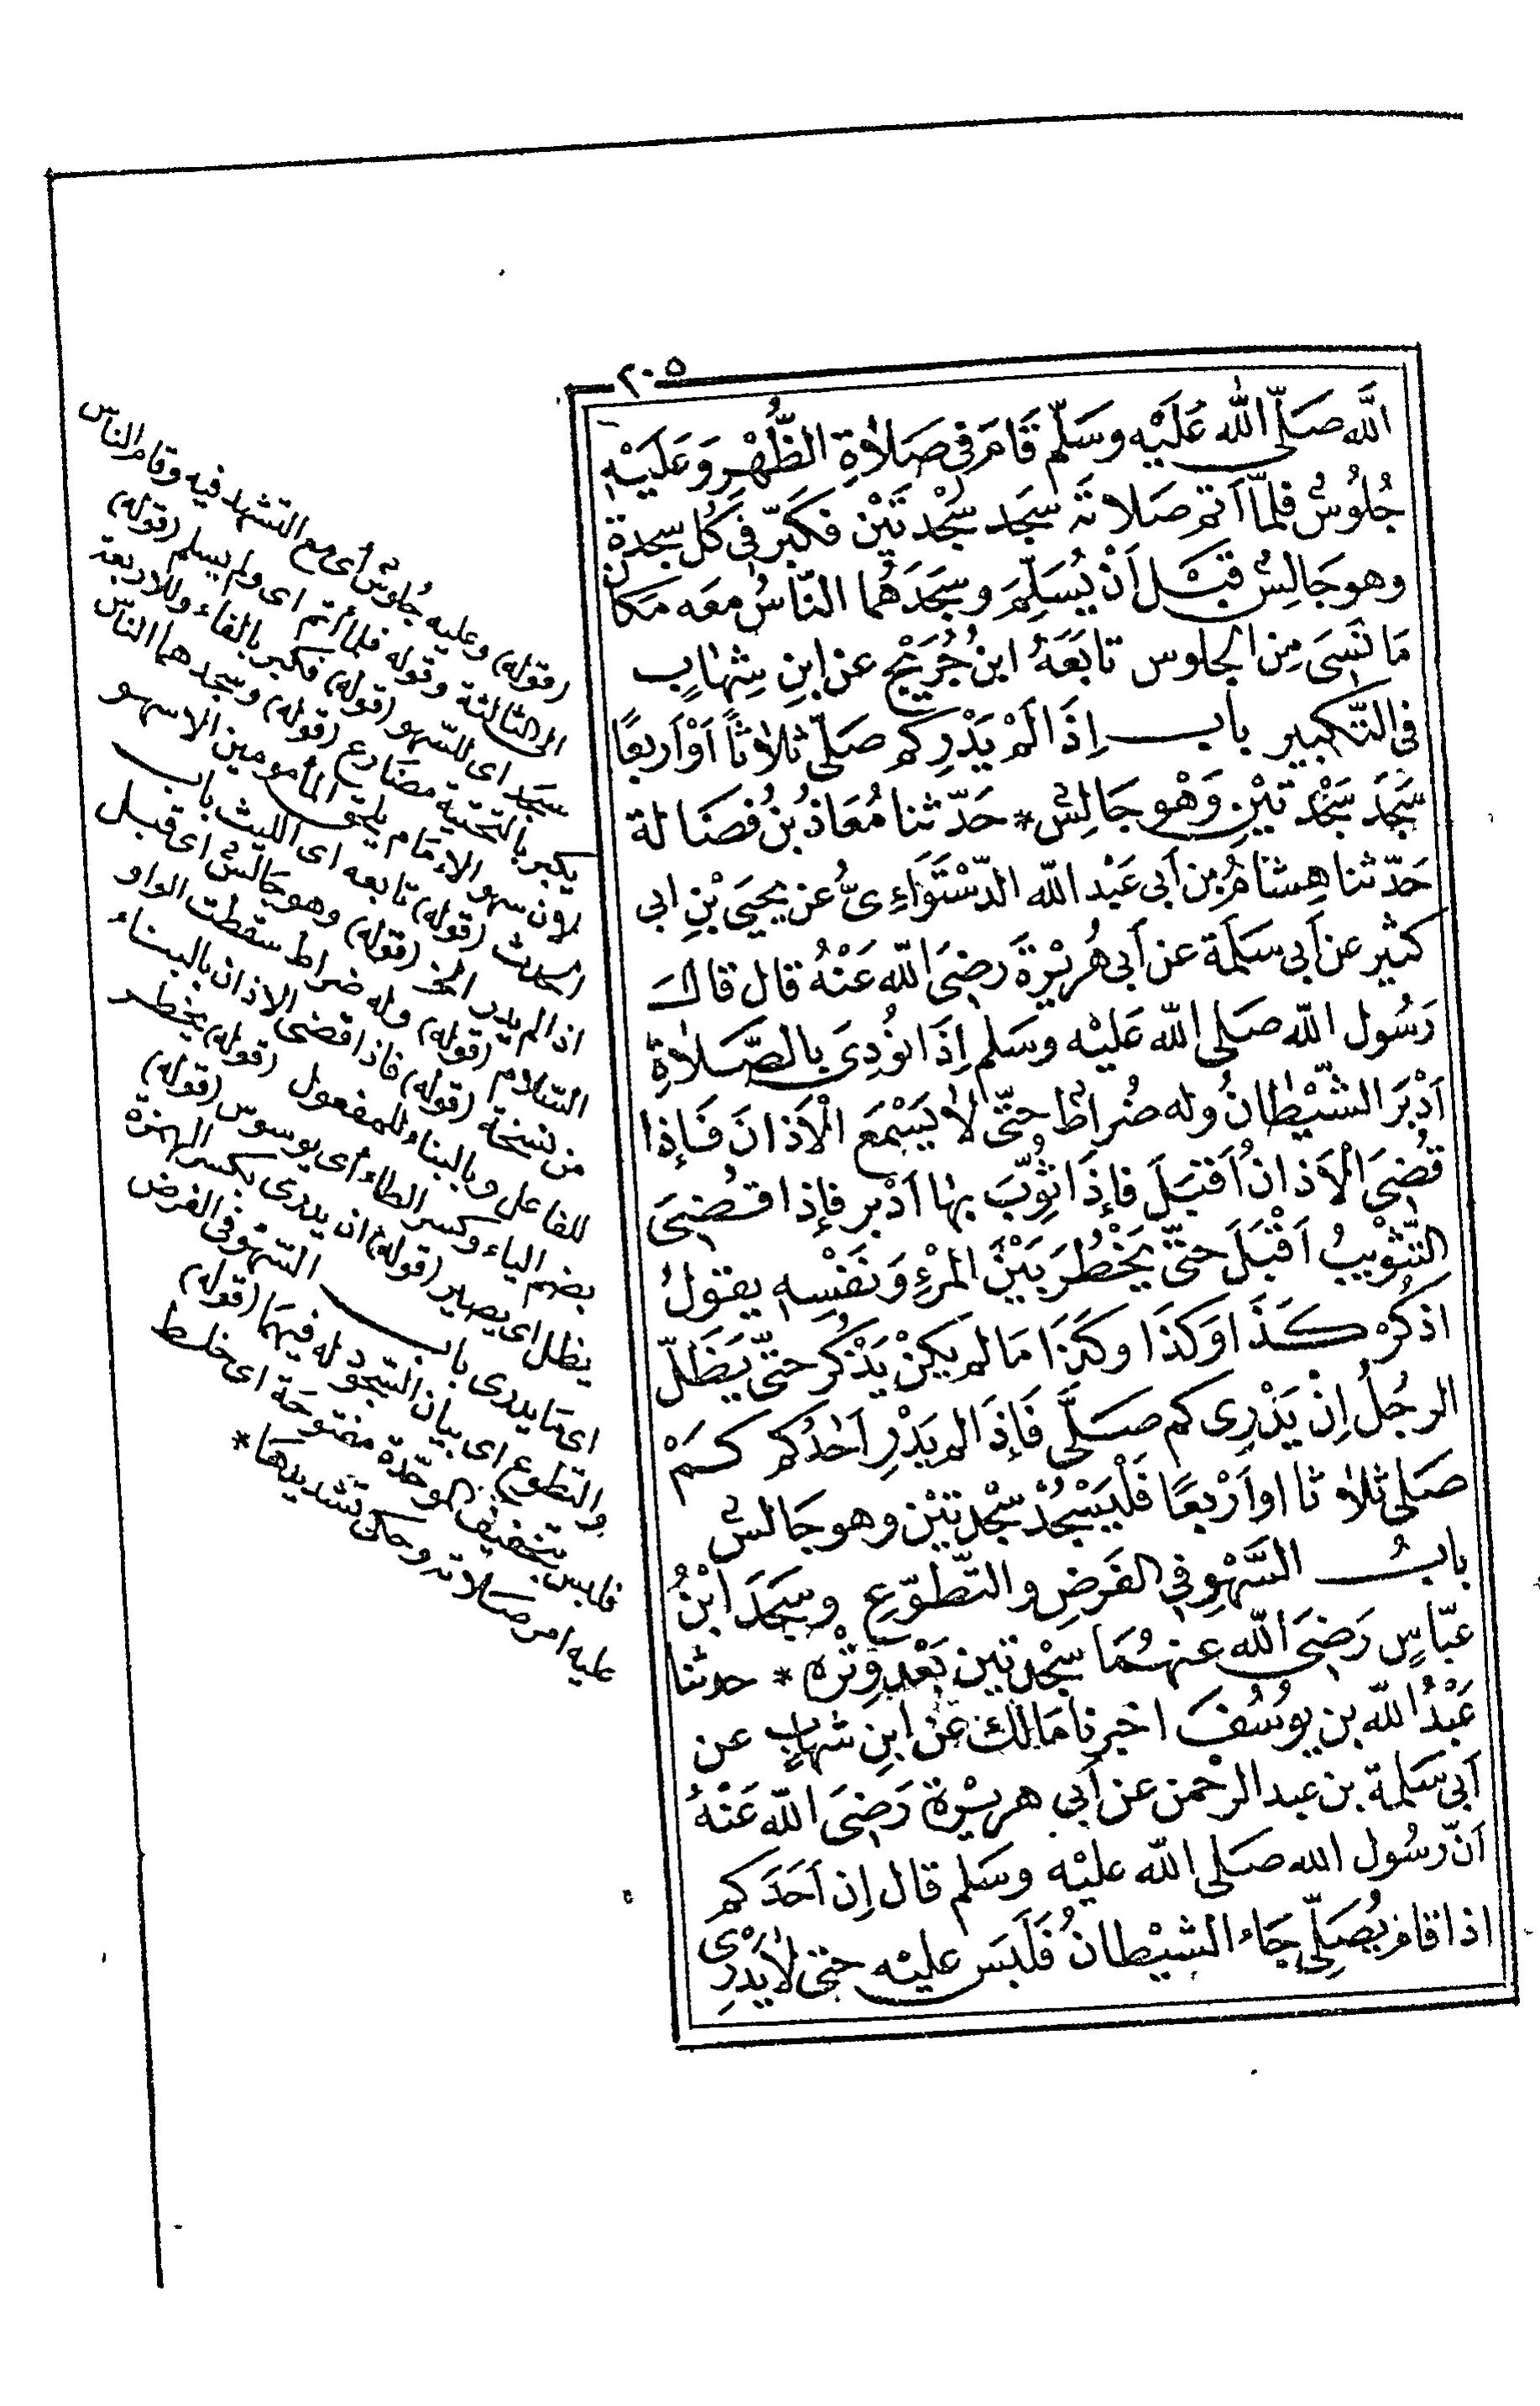 ٢٠٥
اللَّه صَلّى اللّٰه عَلَيْه وسَلّم قَامَ فى صَلاٰةِ الظُّهْرِ وَعَلَيْهِ
جُلُوسٌ فلمّا أَتم صَلاتَه سَجَد سَجْدتَيْن فكَبَّر فى كُل سجدة
وهو جَالِسٌ قَبْل أَنْ يُسَلِّمَ وسَجَدَهُما النّاسُ معَه مَكان
مَا نَسِىَ مِن الجلوس تابَعَهُ ابنُ جُرَيْجٍ عن ابنِ شِهٰابٍ
فى التَّكبير باب إِذَا لَمْ يَدْرِ كم صَلّى ثلاٰثاً أَوْ أَربعًا
سَجَدَ سَجْدتَيْنِ وَهْو جَالِسٌ * حَدّثنا مُعَاذُ بنُ فَضَالة
حَدّثنا هِشَامُ بن أَبى عَبْد اللّه الدّسْتَوَاءِىُّ عن يحيَى بْنِ ابى
كثير عن أَبى سَلَمَة عن أَبى هُرَيْرةَ رضِىَ اللّه عَنْهُ قال قال
رَسُول اللّه صَلى اللّه عَليْه وسَلم إِذَا نُودِىَ بِالصَّلاٰةِ
أَدْبَرَ الشّيْطانُ وله ضُراطٌ حتّى لاٰ يَسْمَع الْأَذانَ فَإِذا
قُضِىَ الْأَذانُ أَقْبَلَ فإِذَا ثُوِّبَ بِهٰا أَدْبر فإِذا قُضِىَ
التَّثْوِيبُ أَقْبَلَ حتّى يَخْطُرَ بَيْنَ المرْءِ وَنَفْسِهِ يقولُ
اذكُرْ كَذَا وَكَذَا وكَذَا مَا لم يكنْ يَذْكُر حتّى يَظَلّ
الرجُلُ إِنْ يَدْرِى كم صَلَّى فَإِذَا لم يَدْرِ أَحَدُكم كَمْ
صَلى ثلاٰثا او أَرْبعًا فَلْيَسْجُدْ سَجْدتيْن وهو جَالسٌ
بابُ السَّهْوِ فى الفَرَضِ والتّطوّعِ وسَجَدَ ابْنُ
عبّاسٍ رَضِىَ اللّه عنهُمَا سجْدتين بَعْد وِتْرِه * حدثنا
عَبْدُ اللّه بن يوسُفَ اخبرنا مَالك عَن ابنِ شهابٍ عن
أَبى سَلمة بن عبد الرحمن عن أَبى هريْرة رَضِىَ اللّه عَنْهُ
أَنّ رسُول الله صَلى اللّه عليْه وسَلم قال إِن أَحَدَكم
اذا قام يُصَلِّى جَاءَ الشيْطانُ فَلَبَس عليْه حتى لاٰ يَدْرِىَ
(قوله) وعليه جُلوسٌ أى مع التشهد فيه وقام الناس
الى الثالثة وقوله فلما أتم اى ولم يسلم (قوله)
سجَد اى للسّهو (قوله) فكبر بالفاء وللاربعة
يكبر بالتحتية مضَارع (قوله) وسجدهما الناس
لان سهو الامَام يلحق المأمومين الاسهو
الحدث (قوله) تابعه اى الليث باب
اذا لم يدر الخ (قوله) وهو جالسٌ اى قبل
السّلام (قوله) وله ضراط سقطت الواو
من نسخة (قوله) فاذا قضى الاذان بالبناء
للفاعل وبالبناء للمفعول (قوله) يخطر
بضم الياء وكسر الطاء أى يوسوس (قوله)
يظل اى يصير (قوله) ان يدرى بكسر الهمزة
اى مَا يدرى باب السّهو فى الفرض
والتطوع اى بيان السّجود له فيهمَا (قوله)
فلبس بتخفيف الموحّدة مفتوحَة اى خلط
عليه امر صَلاته وحكى تشديدهَا *